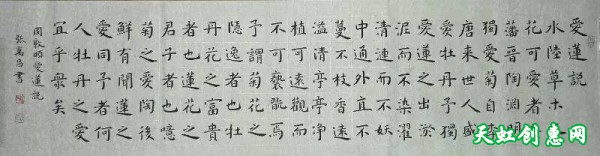 愛蓮說
水陸草木
花可愛者
藩晉陶淵明
獨愛菊自
唐來世人盛
愛牡丹予獨
愛蓮之出淤
泥而不染濯
清漣而不妖
中通外直不
蔓不枝香遠
溢清亭亭淨
植可遠觀而
不可褻玩焉
予謂菊花之
隱逸者也牡
丹花之富貴
者也蓮花之
君子者也噫
菊之愛陶後
鮮有聞蓮之
愛同予者何
人牡丹之愛
宜乎眾矣
周敦頤愛蓮說
張萬昌書
天虹创惠网